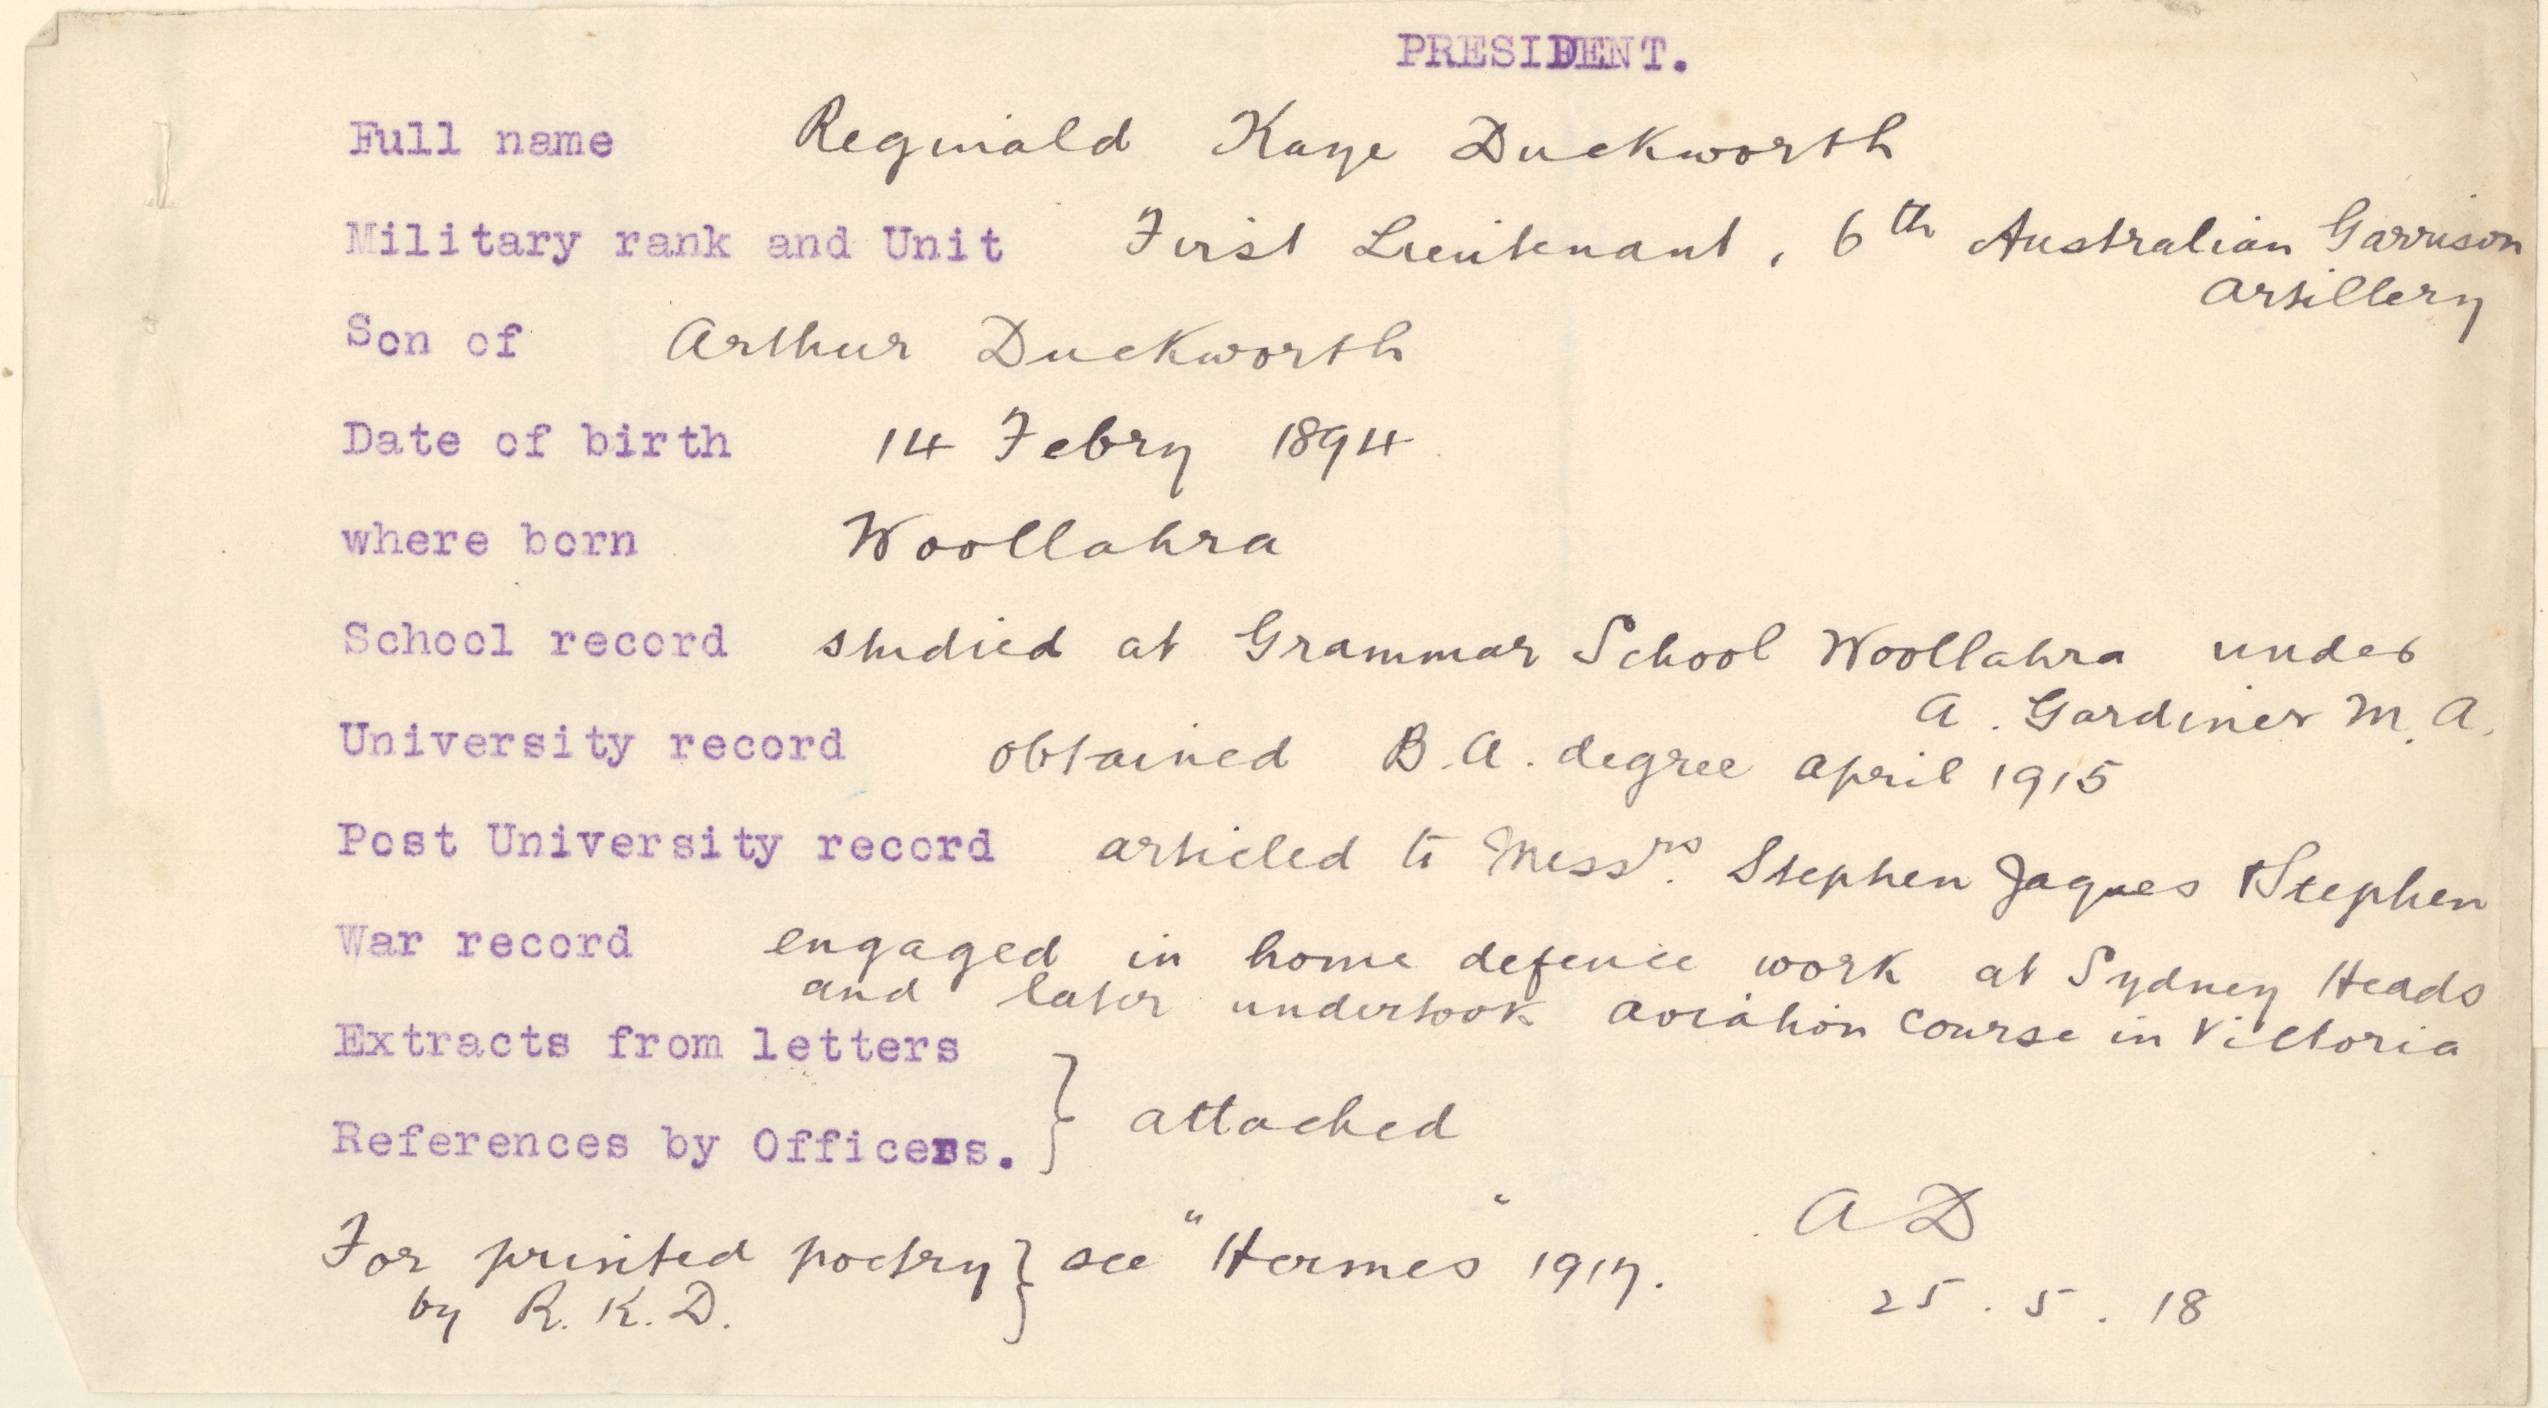 PRESIDENT.
Full name Reginald Kaye Duckworth
Military rank and Unit First Lieutenant, 6th Australian Garrison
Artillery
Son of Arthur Duckworth
Date of birth 14 Febry 1894
where born Woollahra
School record studied at Grammar School Woollahra under
A. Gardiner M.A.
University record obtained B.A. degree April 1915
Post University record articled to Messrs. Stephen Jaques & Stephen
War record engaged in home defence work at Sydney Heads
and later undertook aviation course in Victoria
Extracts from letters
References by Officers. } attached
For printed poetry } see "Hermes" 1917.
by R. K. D.
A D
25. 5. 18